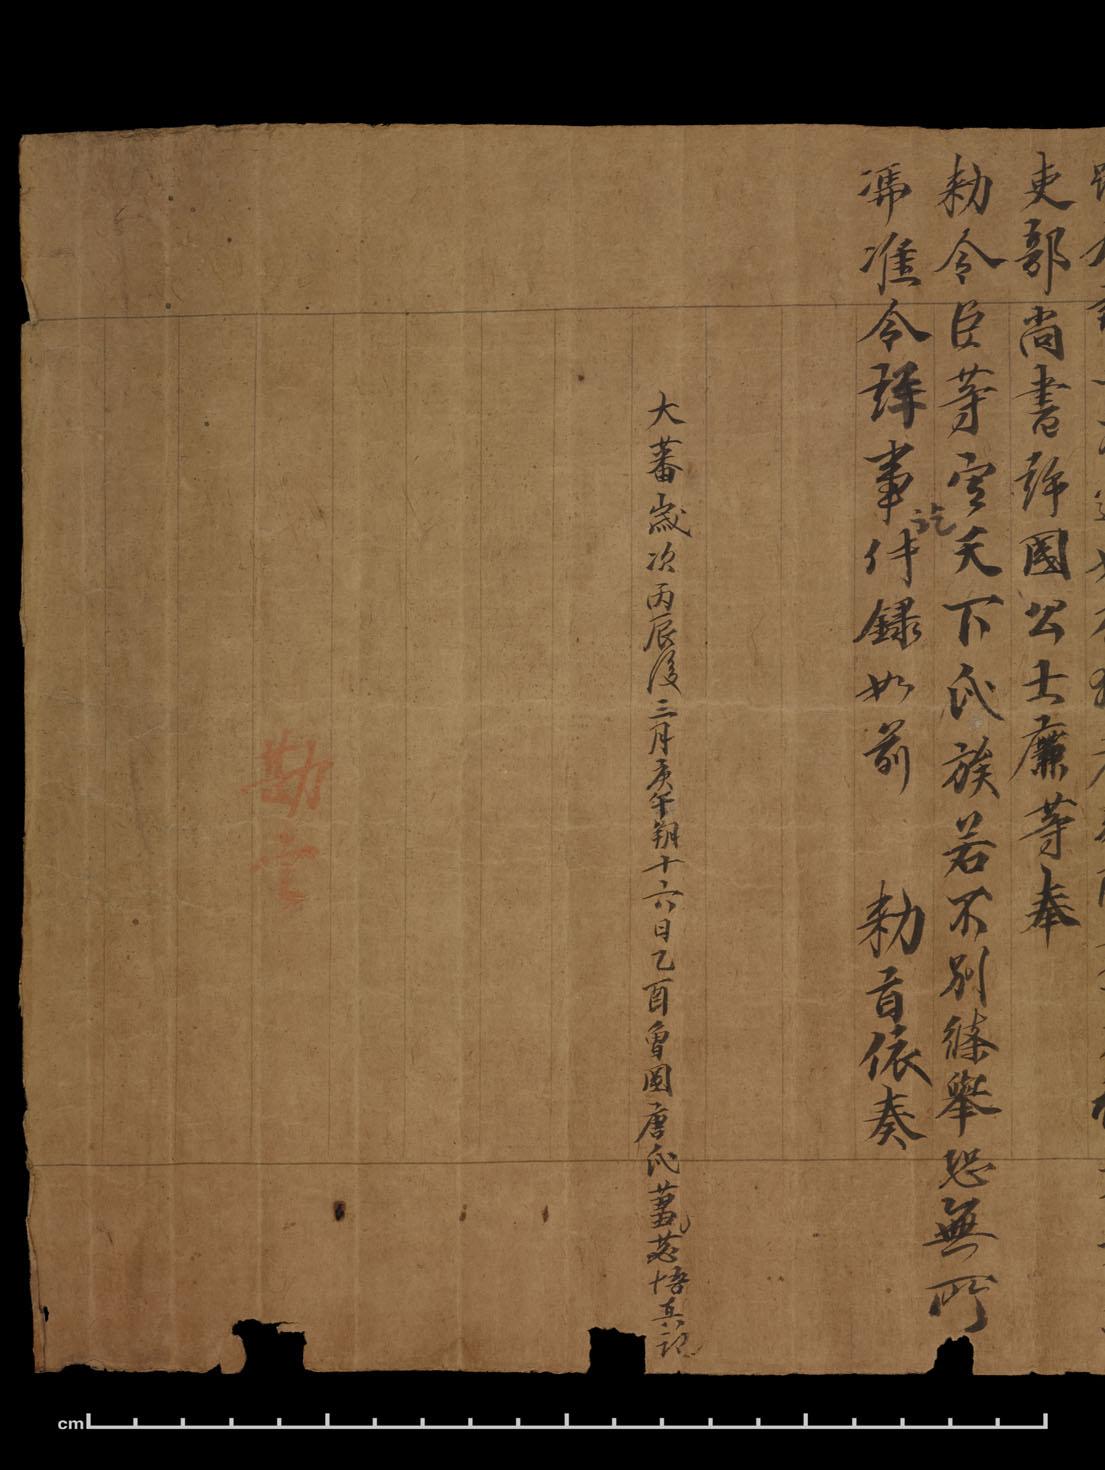 吏部尚書許國公士廉等奉
勑令臣等定天下氏族若不別條舉恐無所
憑准令詳事訖件録如前　勑旨依奏
大蕃歲次丙辰後三月庚午朔十六日乙酉魯國唐氏蒭苾悟真記
勘定
cm